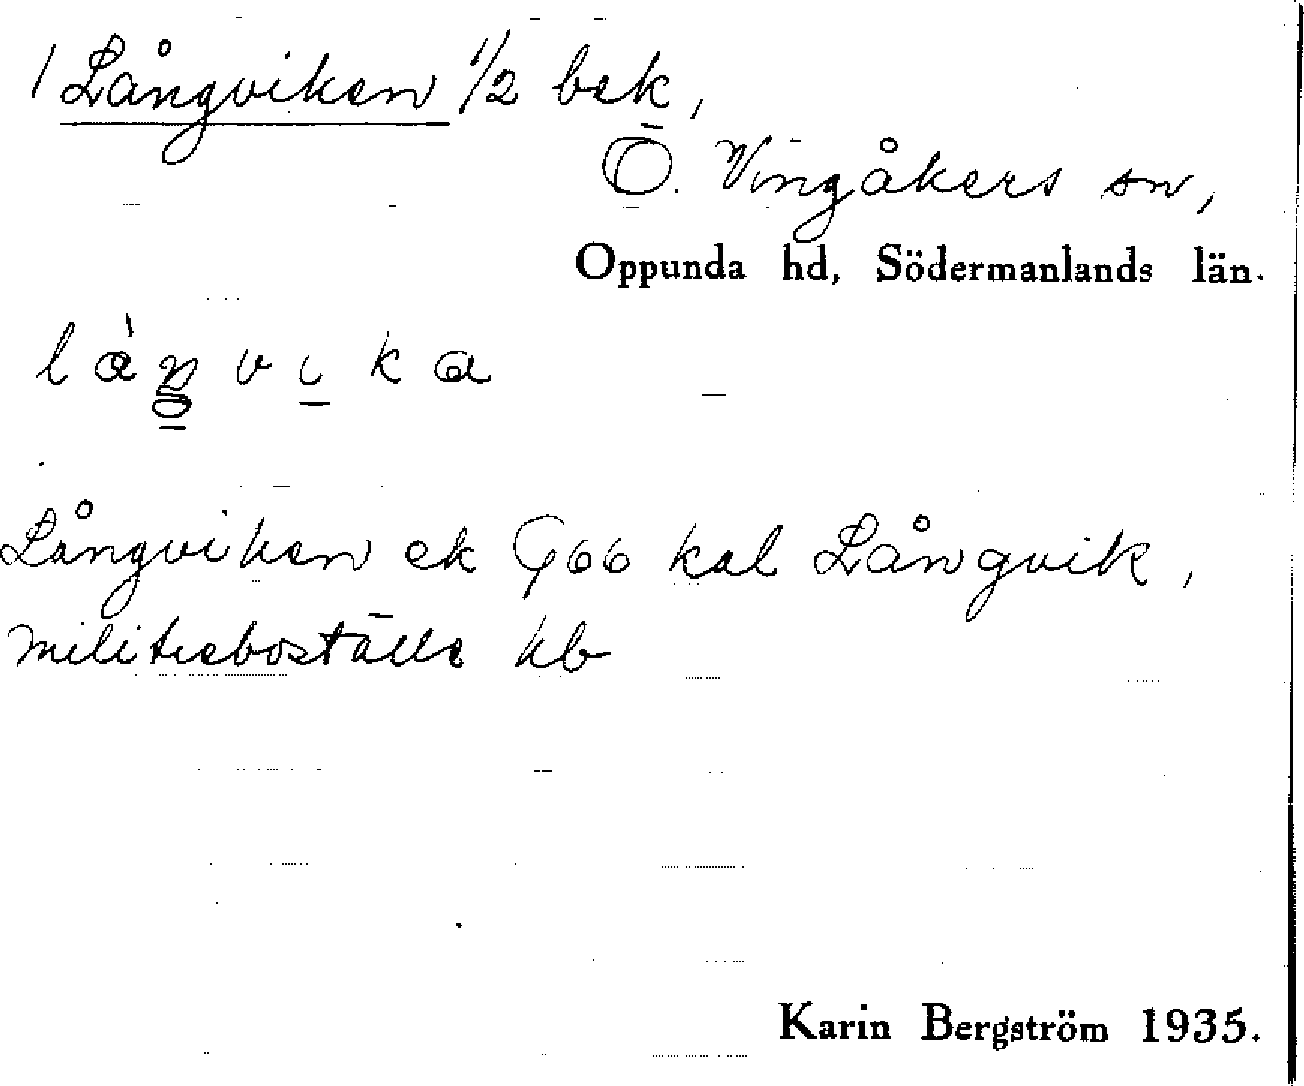 1 Långviken 1/2 bek,
Ö. Vingåkers sn,
Oppunda hd, Södermanlands län.
lå̀ŋvika
Långviken ek G66 kal Långvik,
militieboställe kb
Karin Bergström 1935.